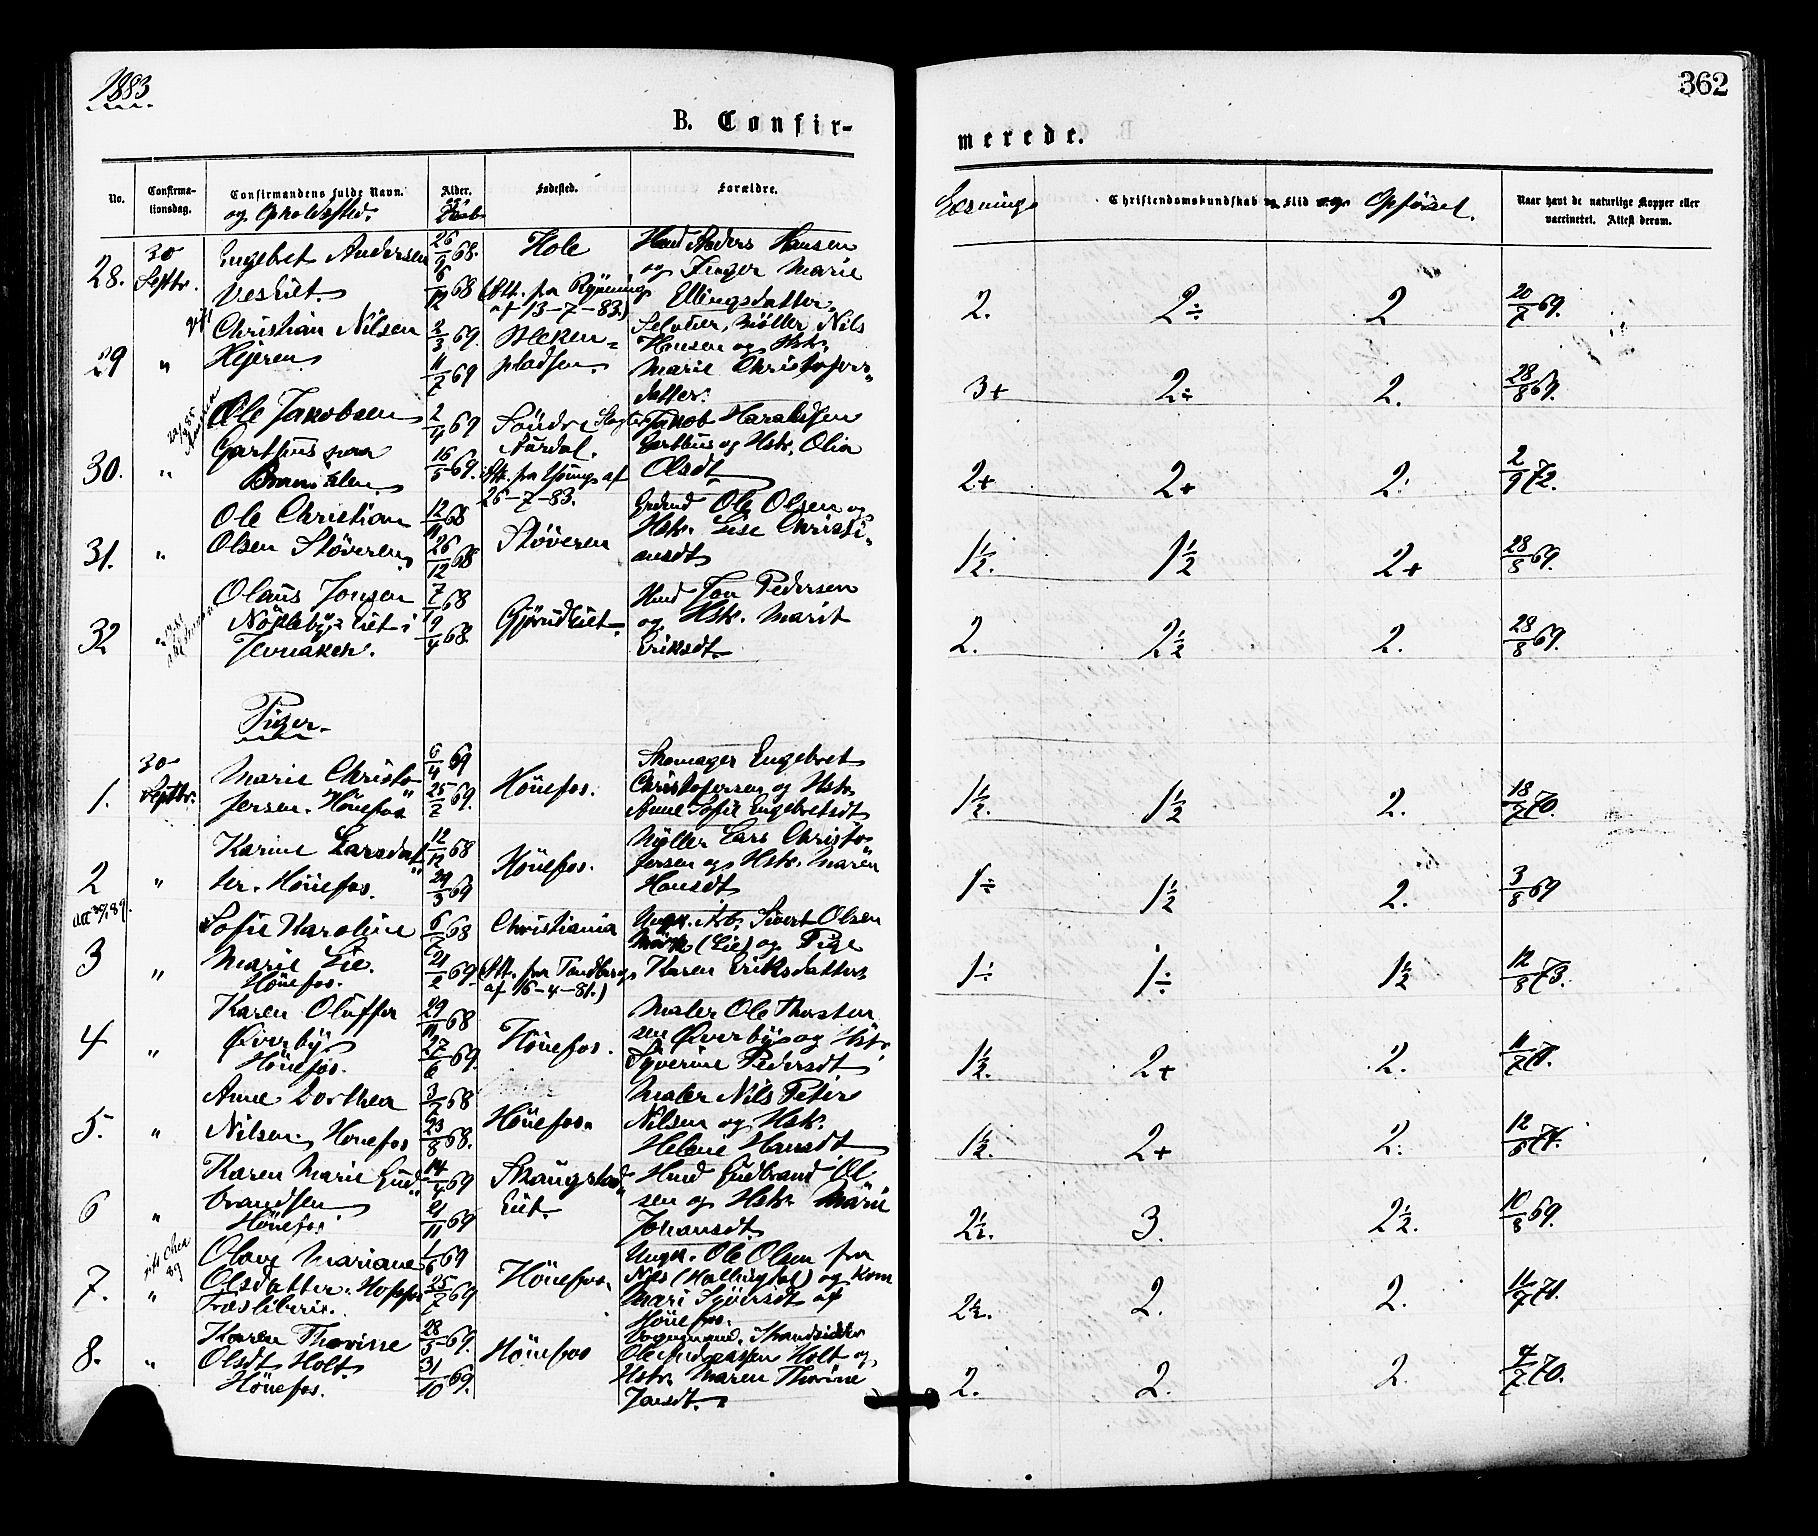 1883
362
B. Confir-
merede.
No.
Confirma-
tionsdag.
Confirmandens fulde Navn.
og Opholdssted.
Alder.
og
Daab
Fødested.
Forældre.
Læsning
Christendomskundskab og Flid og Opførsel.
Naar havt de naturlige Kopper eller
vaccineret. Attest derom.
28.
30
Septbr.
Engebret Andersen
26/9 68.
6/12 68
Hole
(Att. fra
af 13-7-83.)
Husmd Anders Hansen
og Inger Marie
Ellingsdatter.
2.
2÷
2
20/7 69.
29
"
Christian Nilsen
Hejeren
2/3 69.
11/7 69
pladsen.
Selveier, Møller Nils
Hansen og Hstr.
Marie Christofers-
datter.
3+
2÷
2.
28/8 69.
30.
"
Ole Jakobsen
Garthus paa
2/4 69
16/5 69.
Söndre
Aurdal.
26-7-83.
Jakob Haraldsen
Garthus og Hstr. Olia
Olsdt.
2+
2+
2.
2/9 72.
31.
"
Ole Christian
Olsen Støveren
12/11 68
26/12 68
Støveren
Ole Olsen og
Hstr. Lise Christi-
ansdt
1½.
1½
2+
28/8 69.
32
Olaus Jonsen
Nökleby-Eiet i
Jevnaker.
7/1 68
19/4 68
Gjörudeiet.
Husmd Jon Pedersen
og Hstr. Marit
Eriksdt.
2.
2½
2.
28/8 69.
Piger.
1.
30
Septbr.
Marie Christo-
fersen. Hönefos
6/4 69
25/7 69.
Hönefos.
Skomager Engebret
Christofersen og Hstr.
Anne Sofie Engebretsdt
1½.
1½
2.
18/7 70.
2
"
Karine Larsdat-
ter. Hönefos.
12/12 68
29/3 69
Hönefos.
Møller Lars Christo-
fersen og Hstr. Maren
Hansdt
1÷
1½
2.
3/8 69
3
"
Sofie Karoline
Marie Lie.
Hönefos.
6/7 68
21/2 69.
Christiania
(Att. fra Tandberg
af 16-4-81.)
Ungk. Arb. Sivert Olsen
(Lie) og Pige
Karen Eriksdatter
1÷
1÷
1½
12/8 73.
4
"
Karen Oluffa
Øverby
Hönefos.
29/11 68
27/6 69.
Hönefos.
Maler Ole Thorsten-
sen Øverby og Hstr.
Syverine Pedersdt
1½.
2+
2.
11/7 71.
5.
"
Anne Dorthea
Nilsen, Hönefos
3/7 68
23/8 68.
Hönefos.
Maler Nils Peter
Nilsen og Hstr.
Helene Hansdt
1½.
2+
2.
12/6 71.
6
"
Karen Marie Gud-
brandsen
Hönefos.
14/4 69
21/11 69
Skaugstad-
Eiet.
Husmd Gudbrand Ol-
sen og Hstr. Marie
Johansdt.
2½.
3.
2½.
10/8 69.
7.
"
Olava Mariane
Olsdatter. Hofsfos
Træsliberi.
1/6 69
25/7 69
Hönefos.
Ungk. Ole Olsen fra
Næs (Hallingdal) og Kone
Mari Syversdt af
Hönefos.
2½.
2.
2.
11/7 71.
8.
"
Karen Thorine
Olsdt Holt.
Hönefos.
28/5 69.
31/10 69.
Hönefos
Ole Andreassen Holt og
Hstr. Maren Thorine
Jansdt.
2.
2.
2.
4/7 70.